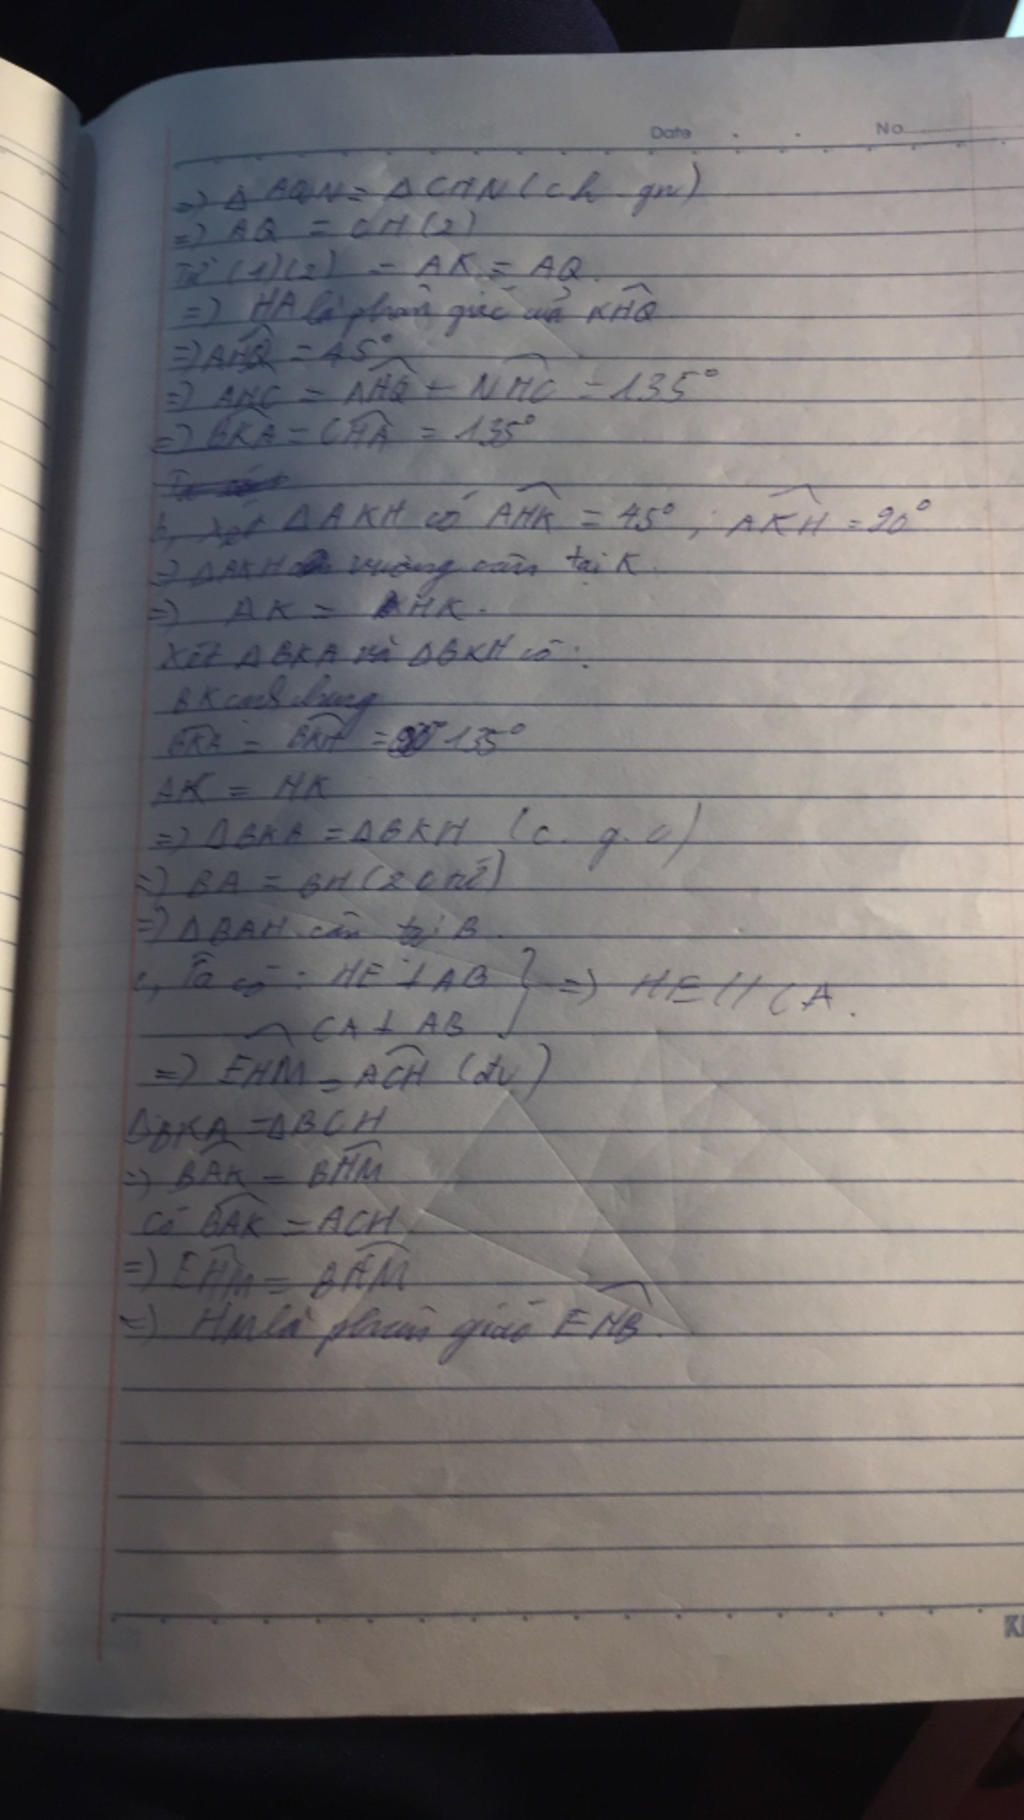 Date No
=) Δ AQN = Δ CHN (ch gn)
=) AQ = CH (2)
Từ (1)(2) = AK = AQ.
=) HA là phân giác của KHQ
=) AHQ = 45°
=) AHC = AHQ + NHC = 135°
=) BKA = CHA = 135°
b, Xét ΔAKH có AHK = 45° ; AKH = 90°
=) ΔAKH vuông cân tại K.
=) AK = HK.
Xét ΔBKA và ΔBKH có:
BK cạnh chung
BKA = BKH = 135°
AK = HK
=) ΔBKA = ΔBKH (c.g.c)
=) BA = BH (2 c tư)
=) ΔBAH cân tại B.
c, Ta có: HE ⊥ AB } =) HE // CA.
CA ⊥ AB
=) EHM = ACH (đv)
ΔBKA = ΔBCH
=) BAK = BHM
Có BAK = ACH
=) EHM = BHM
=) HM là phân giác EHB.